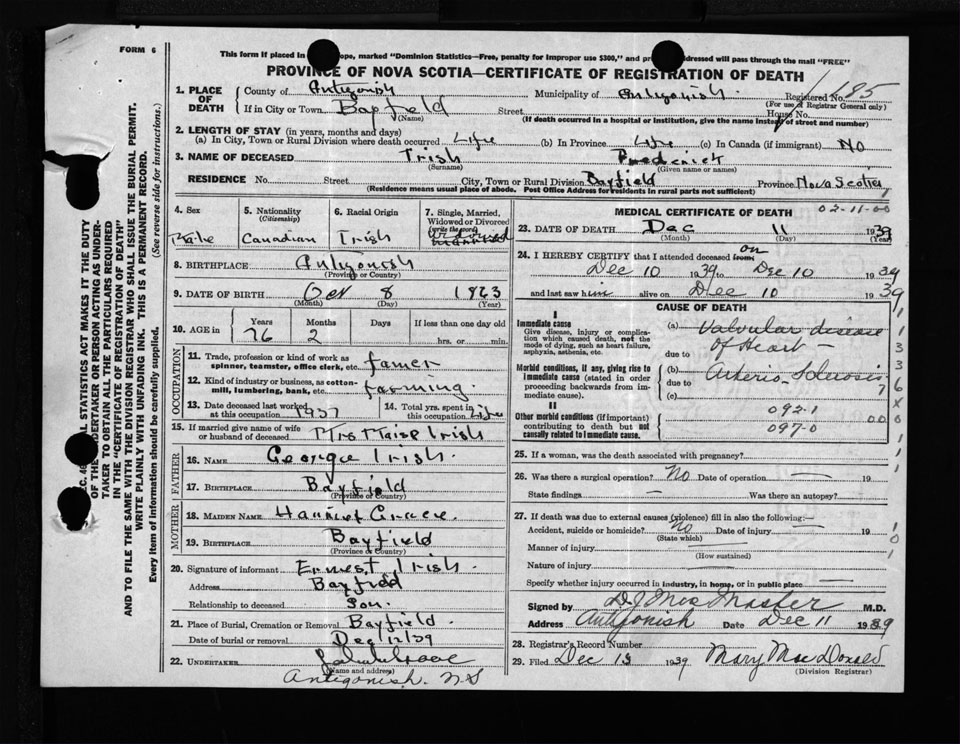 FORM 6
This form if placed in ope, marked "Dominion Statistics—Free, penalty for improper use $300," and pr ddressed will pass through the mail "FREE"
PROVINCE OF NOVA SCOTIA—CERTIFICATE OF REGISTRATION OF DEATH
1. PLACE OF DEATH County of Antigonish Municipality of Antigonish. Registered No. 85
(For use of Registrar General only)
If in City or Town Bayfield Street House No.
(Name) (If death occurred in a hospital or institution, give the name instead of street and number)
2. LENGTH OF STAY (in years, months and days)
(a) In City, Town or Rural Division where death occurred Life (b) In Province Life (c) In Canada (if immigrant) No
3. NAME OF DECEASED Irish Frederick
(Surname) (Given name or names)
RESIDENCE No. Street City, Town or Rural Division Bayfield Province Nova Scotia
(Residence means usual place of abode. Post Office Address for Residents in rural parts not sufficient)
4. Sex Male
5. Nationality (Citizenship) Canadian
6. Racial Origin Irish
7. Single, Married, Widowed or Divorced (write the word)
8. BIRTHPLACE Antigonish
(Province or Country)
9. DATE OF BIRTH Oct 8 1863
(Month) (Day) (Year)
10. AGE in Years Months Days If less than one day old
76 2 hrs. or min.
OCCUPATION
11. Trade, profession or kind of work as spinner, teamster, office clerk, etc. famer
12. Kind of industry or business, as cotton-mill, lumbering, bank, etc. farming.
13. Date deceased last worked at this occupation 1937 14. Total yrs. spent in this occupation Life
15. If married give name of wife or husband of deceased Mrs Irish
FATHER
16. NAME George Irish.
17. BIRTHPLACE Bayfield
(Province or Country)
MOTHER
18. MAIDEN NAME Harriet Grace.
19. BIRTHPLACE Bayfield
(Province or Country)
20. Signature of informant Ernest Irish.
Address Bayfield
Relationship to deceased Son.
21. Place of Burial, Cremation or Removal Bayfield.
Date of burial or removal Dec 12/39
22. UNDERTAKER
(Name and address)
Antigonish. N S
MEDICAL CERTIFICATE OF DEATH 02-11-00
23. DATE OF DEATH Dec 11 1939
(Month) (Day) (Year)
24. I HEREBY CERTIFY that I attended deceased from on
Dec 10 1939 to Dec 10 1939
and last saw him alive on Dec 10 1939
CAUSE OF DEATH
I
Immediate cause
Give disease, injury or complication which caused death, not the mode of dying, such as heart failure, asphyxia, asthenia, etc.
(a) Valvular disease of Heart —
due to
Morbid conditions, if any, giving rise to immediate cause (stated in order proceeding backwards from immediate cause).
(b) Arterio-Sclerosis
due to
(c)
II
Other morbid conditions (if important) contributing to death but not causally related to immediate cause.
092.1
097-0
25. If a woman, was the death associated with pregnancy?
26. Was there a surgical operation? No Date of operation —
State findings — Was there an autopsy?
27. If death was due to external causes (violence) fill in also the following:—
Accident, suicide or homicide? No Date of injury — 19
(State which)
Manner of injury —
(How sustained)
Nature of injury —
Specify whether injury occurred in industry, in home, or in public place —
Signed by D J MacMaster M.D.
Address Antigonish Date Dec 11 1939
28. Registrar's Record Number
29. Filed Dec 13 1939 Mary MacDonald
(Division Registrar)
C. 46 AL STATISTICS ACT MAKES IT THE DUTY
OF THE UNDERTAKER OR PERSON ACTING AS UNDER-
TAKER TO OBTAIN ALL THE PARTICULARS REQUIRED
IN THE "CERTIFICATE OF REGISTRATION OF DEATH"
AND TO FILE THE SAME WITH THE DIVISION REGISTRAR WHO SHALL ISSUE THE BURIAL PERMIT.
WRITE PLAINLY WITH UNFADING INK. THIS IS A PERMANENT RECORD.
Every item of information should be carefully supplied. (See reverse side for instructions.)